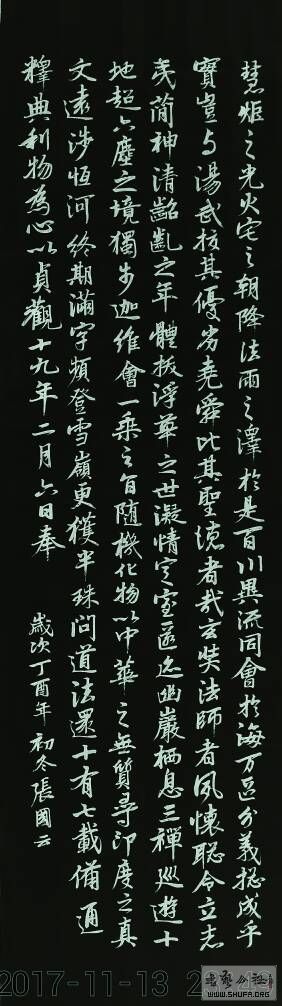 慧炬之光火宅之朝降法雨之澤於是百川異流同會於海万區分義捴成乎
實豈与湯武挍其優劣堯舜比其聖德者哉玄奘法師者夙懷聡令立志
夷簡神清齠齔之年體拔浮華之世凝情定室匿迹幽巖栖息三禪巡遊十
地超六塵之境獨步迦維會一乘之旨随機化物以中華之無質尋印度之真
文遠涉恒河終期滿字頻登雪嶺更獲半珠問道法還十有七載備通
釋典利物為心以貞觀十九年二月六日奉
歲次丁酉年初冬張國云
2017-11-13
書藝公社
WWW.SHUFA.ORG